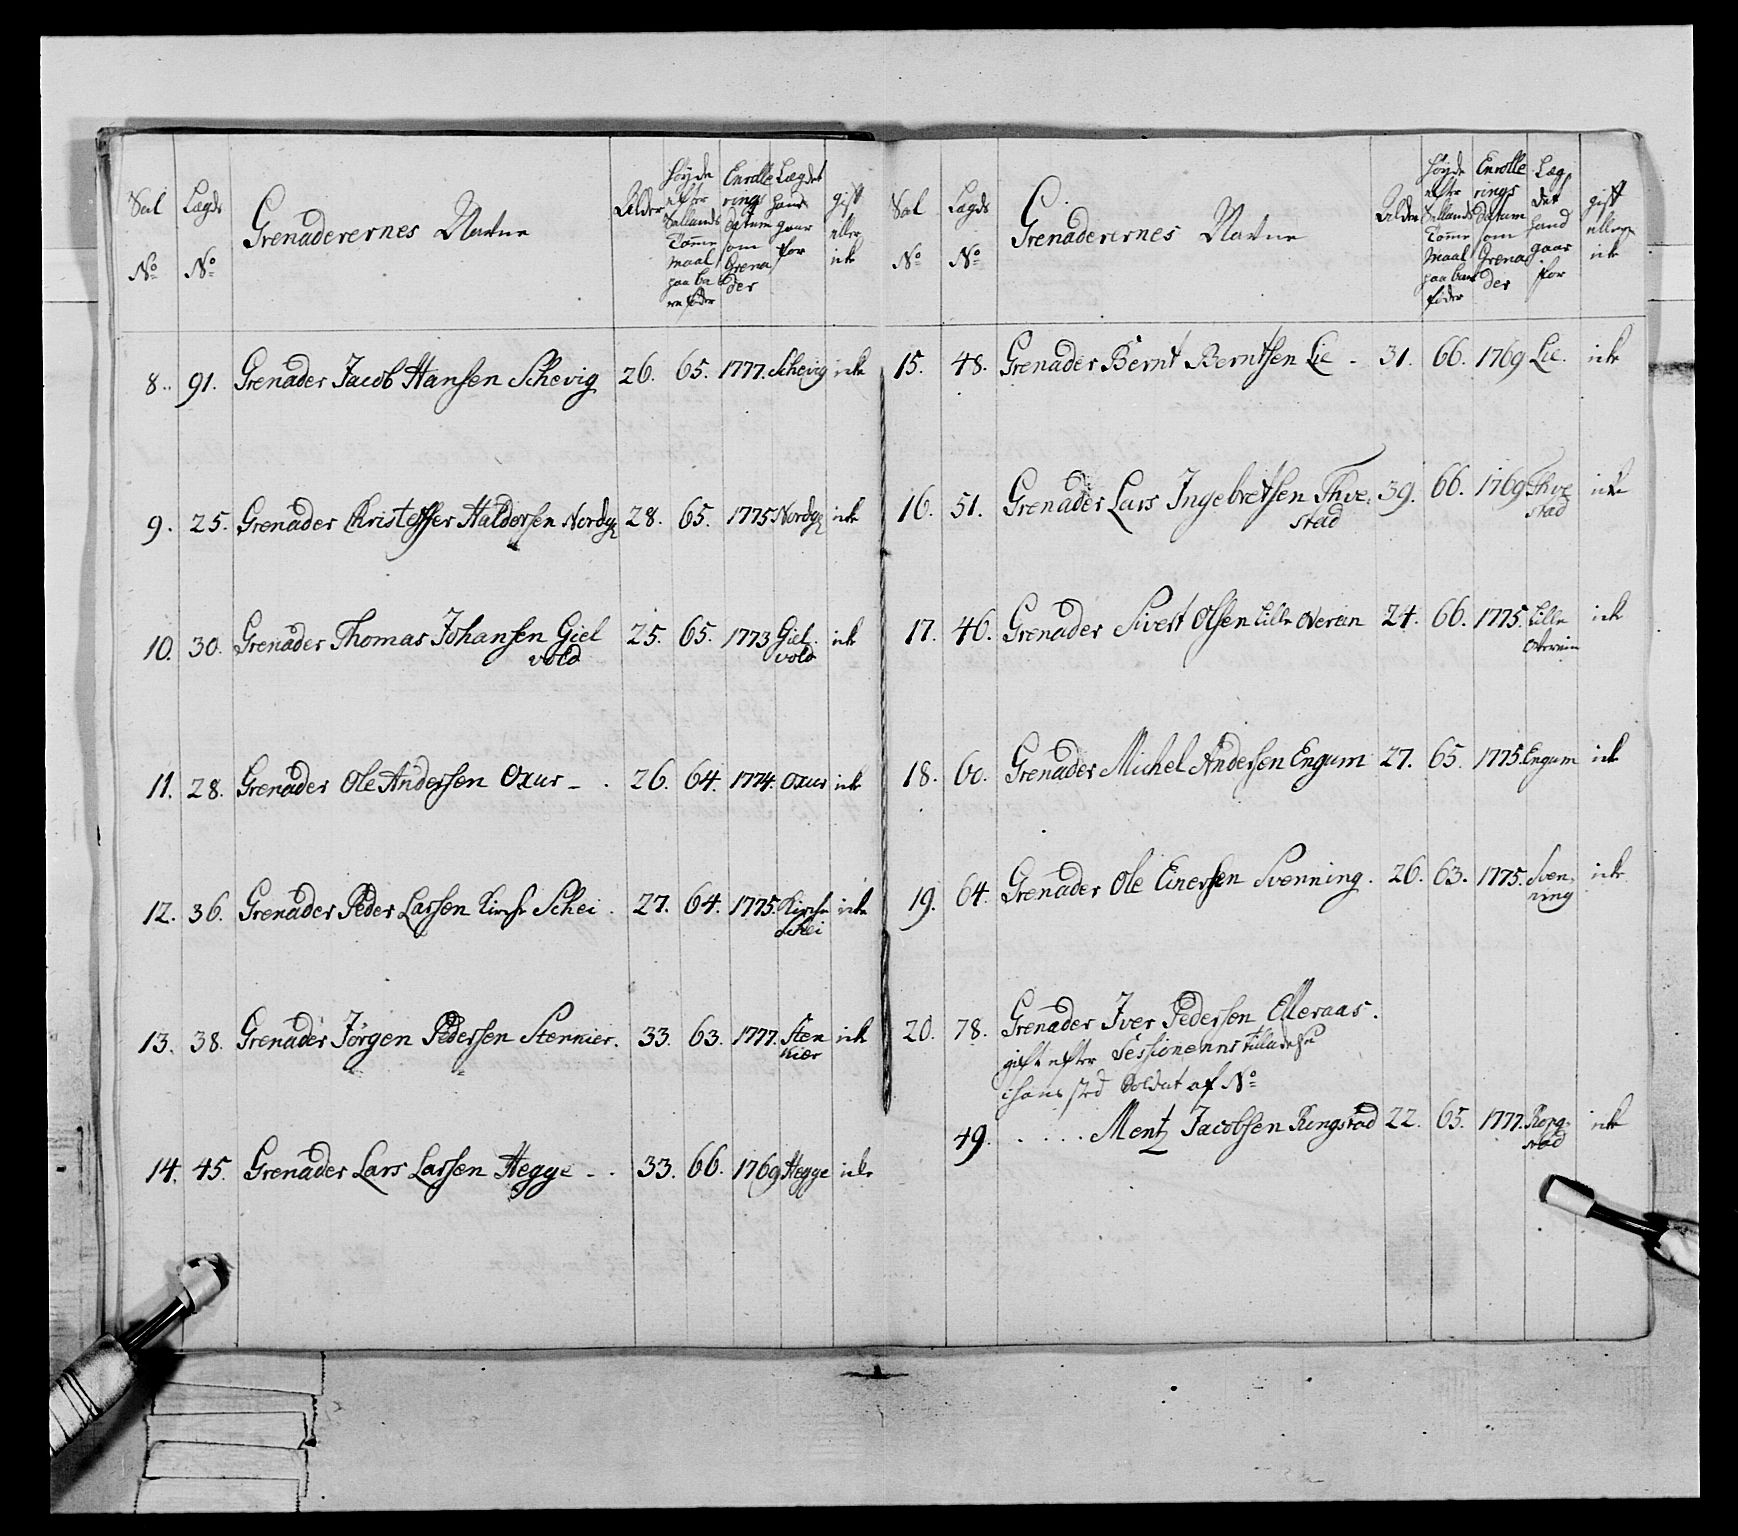 Sal Lægds Grenaderernes Navne Alder Høyde efter Sællands Tomme Maal paa bare føder Enrollerings Datum som Grenader Lægdet hand gaar for gift eller icke
No No
8. 91. Grenader Jacob Hansen Schevig 26. 65. 1777. Schevig icke
9. 25. Grenader Christopher Haldorsen Nordgr 28. 65. 1775. Nordgr icke
10. 30. Grenader Thomas Johansen Giel 25. 65. 1773 Giel icke
vold vold
11. 28. Grenader Ole Andersen Oxur - . 26. 64. 1774. Oxur icke
12. 36. Grenader Peder Larsen Kirche Schei . 27. 64. 1775. Kirche icke
Schei
13. 38. Grenader Jørgen Pedersen Stenkier. 33. 63. 1777. Sten icke
kier
14. 45. Grenader Lars Larsen Hegge - . 33. 66. 1769 Hegge icke
Sal Lægds Grenaderernes Navne Alder Høyde efter Sællands Tomme Maal paa bare føder Enrollerings Datum som Grenader Lægdet hand gaar for gift eller icke
No No
15. 48. Grenader Bernt Berntsen Lie - 31. 66. 1769 Lie. icke
16. 51. Grenader Lars Ingebretsen Thve, 39. 66. 1769 Thve icke
stad stad
17. 46. Grenader Sivert Olsen Lille Overein 24. 66. 1775. Lille icke
Overein
18. 60. Grenader Michel Andersen Engum 27. 65. 1775. Engum icke
19. 64. Grenader Ole Einersen Svenning. 26. 63. 1775. Sven, icke
ning
20. 78. Grenader Iver Pedersen Elleraas.
gift efter Sessionens tilladelse
i hans sted Soldat af No
49. . . . . . Mentz Jacobsen Rongstad 22. 65. 1777. Rong- icke
stad